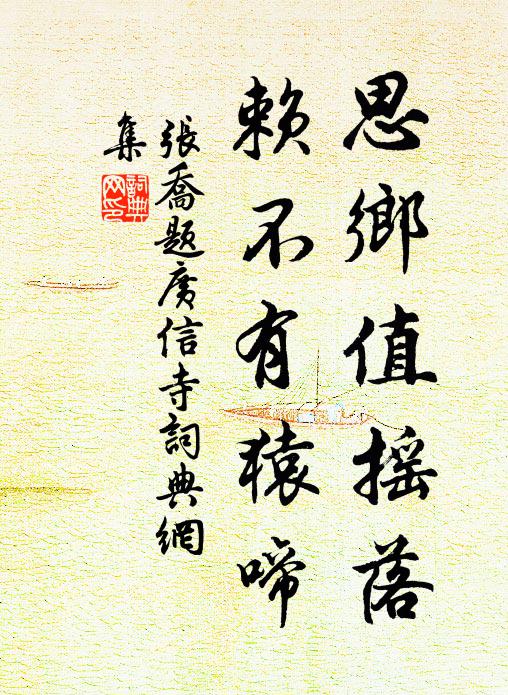 思鄉值摇落
賴不有猿啼
張喬題廣信寺詞典網
集
詞典
网印